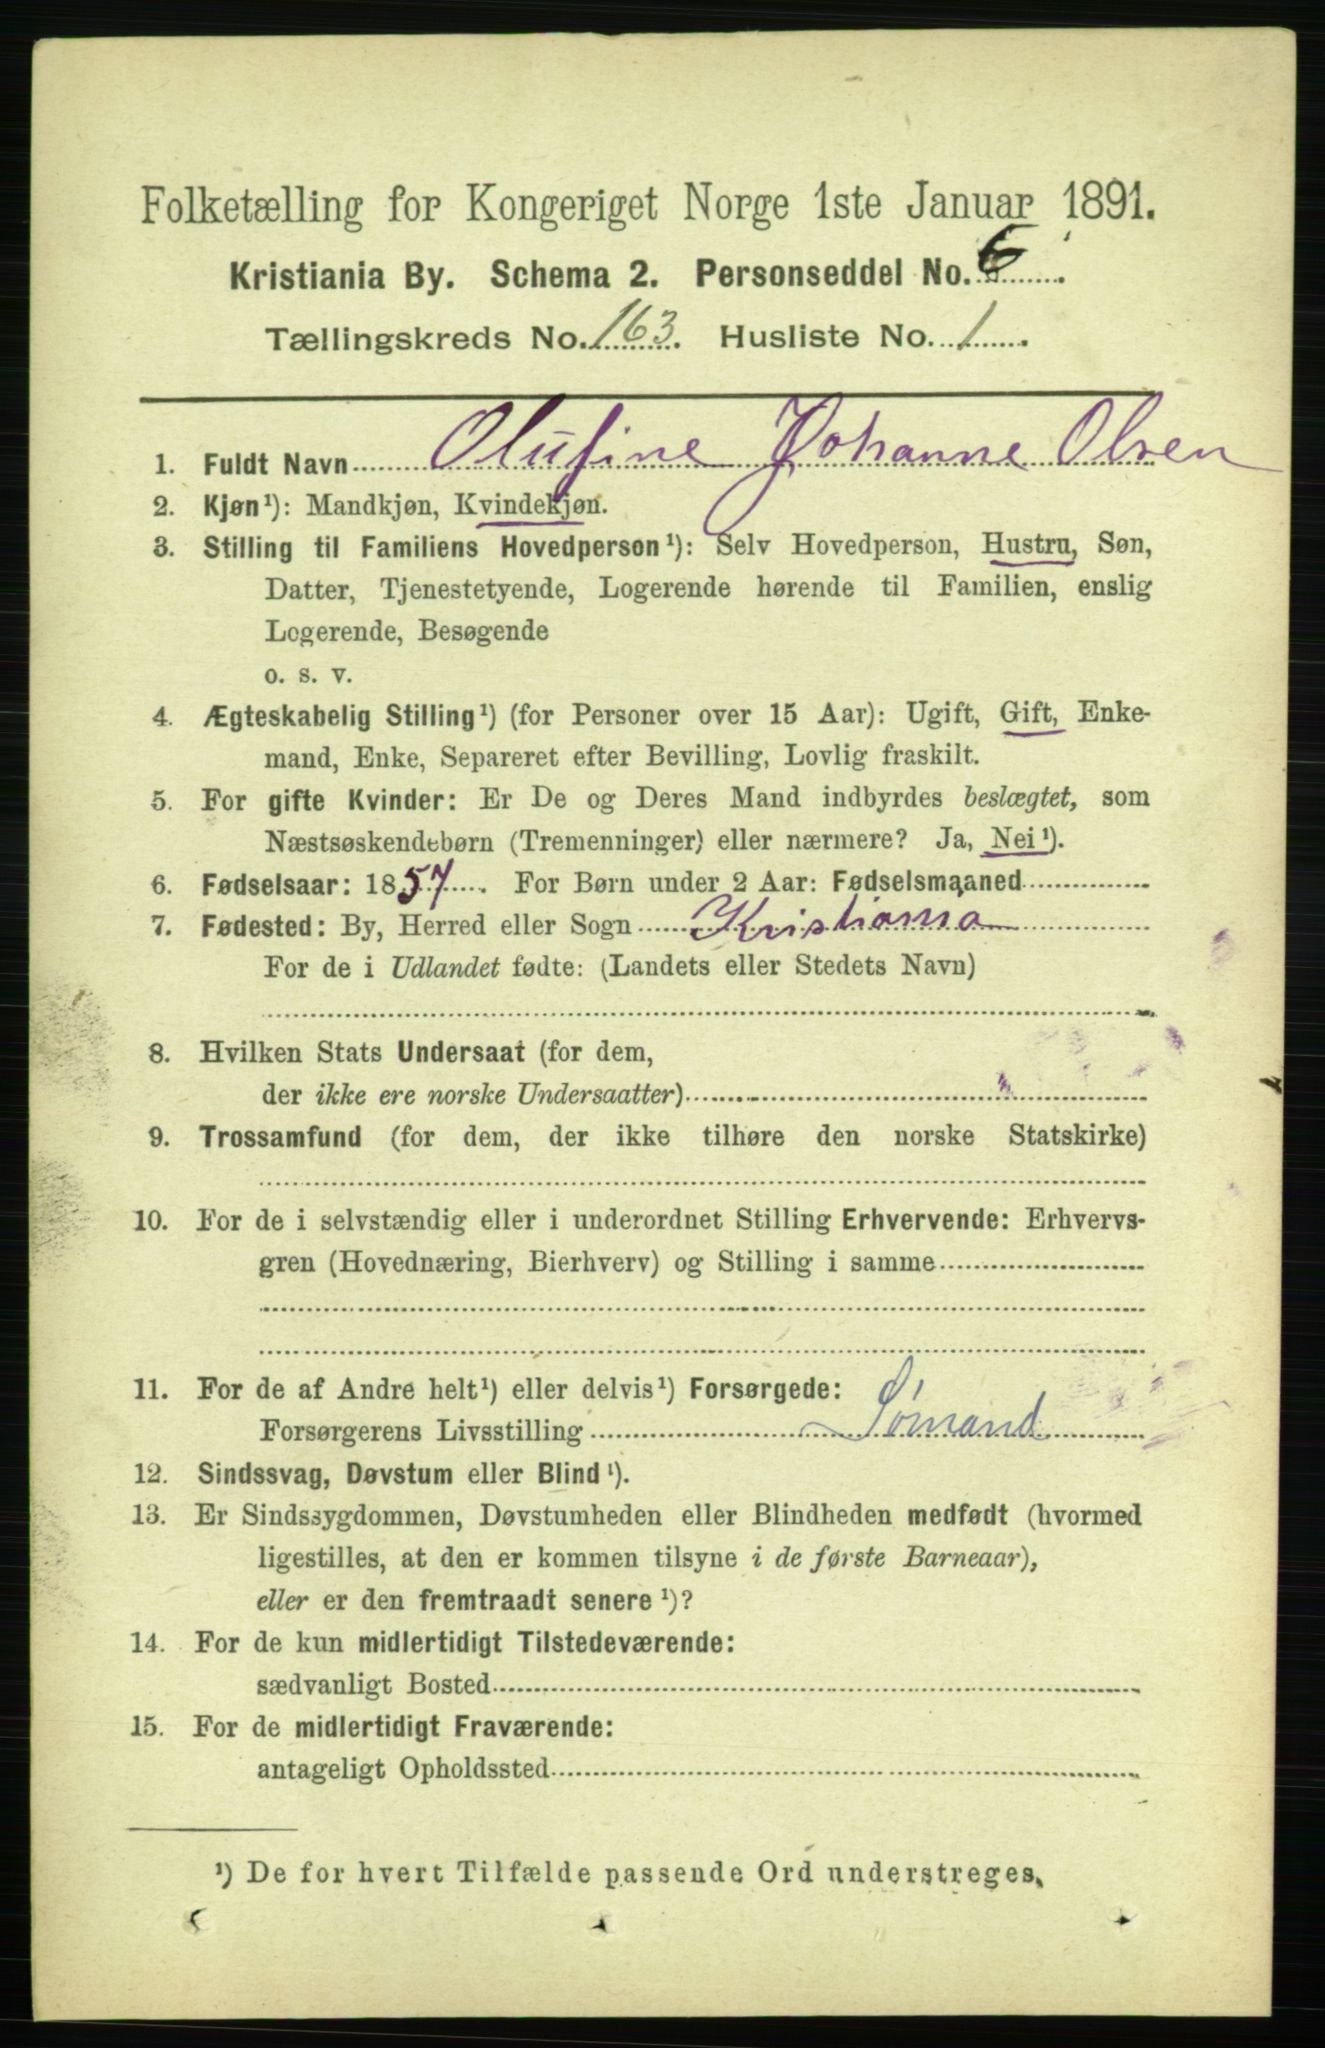 Folketælling for Kongeriget Norge 1ste Januar 1891.
Kristiania By. Schema 2. Personseddel No. 6.
Tællingskreds No. 163. Husliste No. 1.
1. Fuldt Navn Olufine Johanne Olsen
2. Kjøn¹): Mandkjøn, Kvindekjøn.
3. Stilling til Familiens Hovedperson¹): Selv Hovedperson, Hustru, Søn,
Datter, Tjenestetyende, Logerende hørende til Familien, enslig
Logerende, Besøgende
o. s. v.
4. Ægteskabelig Stilling¹) (for Personer over 15 Aar): Ugift, Gift, Enke-
mand, Enke, Separeret efter Bevilling, Lovlig fraskilt.
5. For gifte Kvinder: Er De og Deres Mand indbyrdes beslægtet, som
Næstsøskendebørn (Tremenninger) eller nærmere? Ja, Nei¹).
6. Fødselsaar: 1857. For Børn under 2 Aar: Fødselsmaaned
7. Fødested: By, Herred eller Sogn Kristiania
For de i Udlandet fødte: (Landets eller Stedets Navn)
8. Hvilken Stats Undersaat (for dem,
der ikke ere norske Undersaatter)
9. Trossamfund (for dem, der ikke tilhøre den norske Statskirke)
10. For de i selvstændig eller i underordnet Stilling Erhvervende: Erhvervs-
gren (Hovednæring, Bierhverv) og Stilling i samme
11. For de af Andre helt¹) eller delvis¹) Forsørgede:
Forsørgerens Livsstilling Sømand
12. Sindssvag, Døvstum eller Blind¹).
13. Er Sindssygdommen, Døvstumheden eller Blindheden medfødt (hvormed
ligestilles, at den er kommen tilsyne i de første Barneaar),
eller er den fremtraadt senere¹)?
14. For de kun midlertidigt Tilstedeværende:
sædvanligt Bosted
15. For de midlertidigt Fraværende:
antageligt Opholdssted
¹) De for hvert Tilfælde passende Ord understreges.